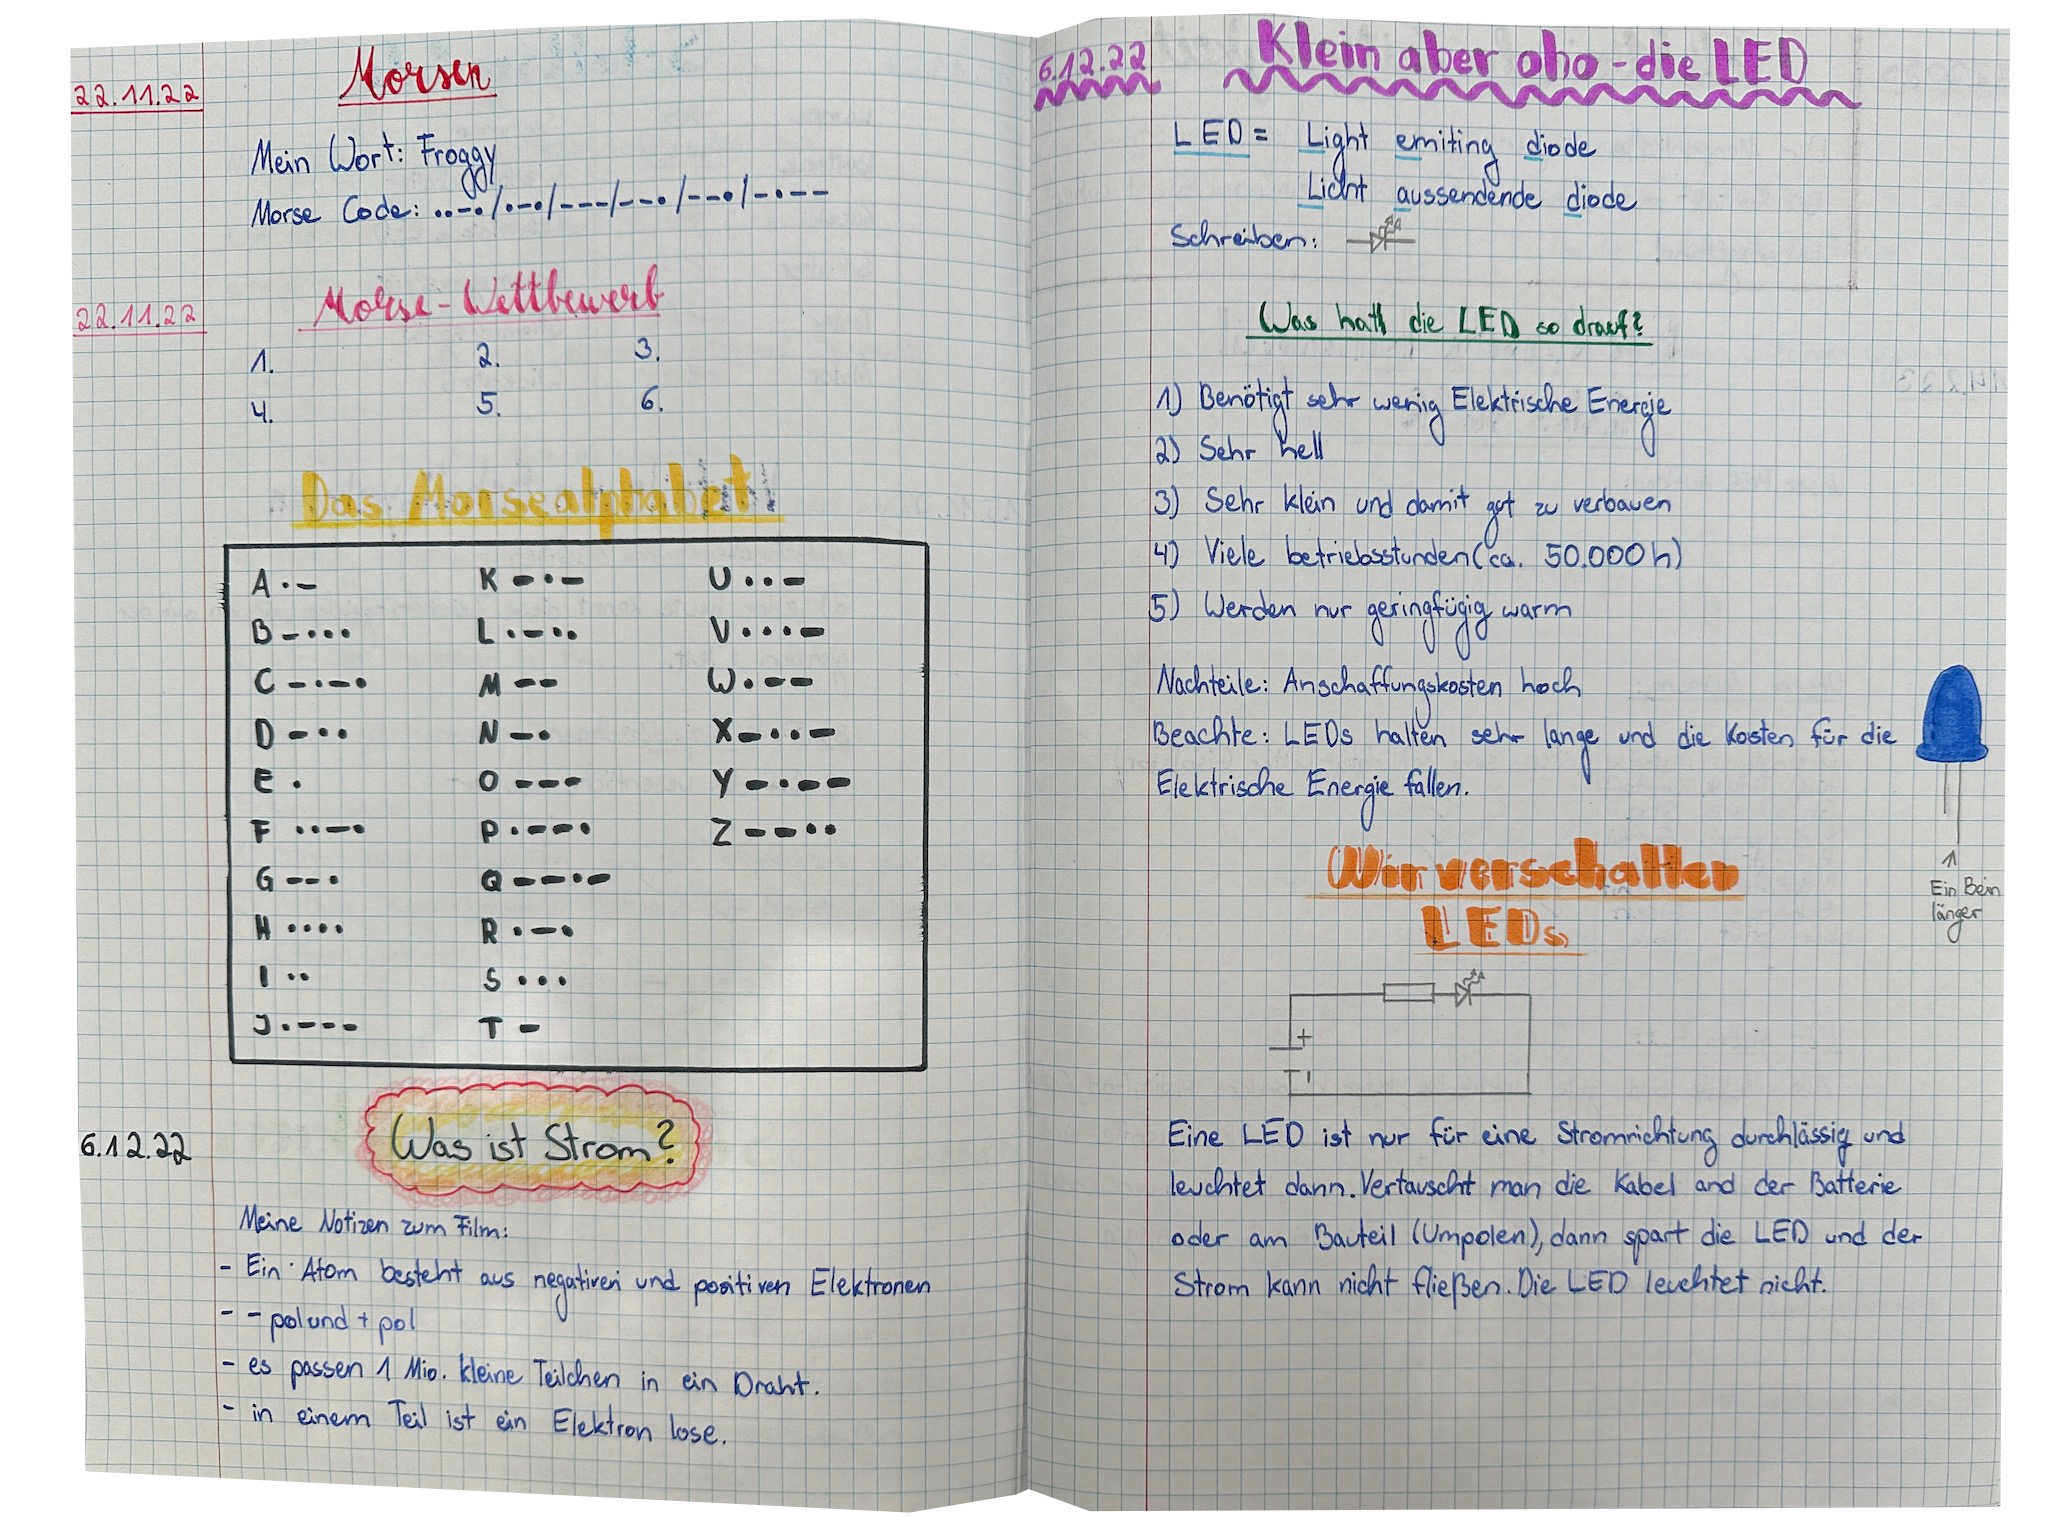 22.11.22
Morsen
Mein Wort: Froggy
Morse Code: ..-./.-./---/--./--./-.--
22.11.22
Morse-Wettbewerb
1. 2. 3.
4. 5. 6.
Das Morsealphabet
A .- K -.- U ..-
B -... L .-.. V ...-
C -.-. M -- W .--
D -.. N -. X -..-
E . O --- Y -.--
F ..-. P .--. Z --..
G --. Q --.-
H .... R .-.
I .. S ...
J .--- T -
6.12.22
Was ist Strom?
Meine Notizen zum Film:
- Ein Atom besteht aus negativen und positiven Elektronen
- - pol und + pol
- es passen 1 Mio. kleine Teilchen in ein Draht.
- in einem Teil ist ein Elektron lose.
6.12.22
Klein aber oho - die LED
LED = Light emiting diode
Licht aussendende diode
Schreiben:
Was hatt die LED so drauf?
1) Benötigt sehr wenig Elektrische Energie
2) Sehr hell
3) Sehr klein und damit gut zu verbauen
4) Viele betriebsstunden (ca. 50.000 h)
5) Werden nur geringfügig warm
Nachteile: Anschaffungskosten hoch
Beachte: LEDs halten sehr lange und die Kosten für die
Elektrische Energie fallen.
Ein Bein
länger
Wir verschalten
LEDs
+
-
Eine LED ist nur für eine Stromrichtung durchlässig und
leuchtet dann. Vertauscht man die Kabel and der Batterie
oder am Bauteil (Umpolen), dann spart die LED und der
Strom kann nicht fließen. Die LED leuchtet nicht.